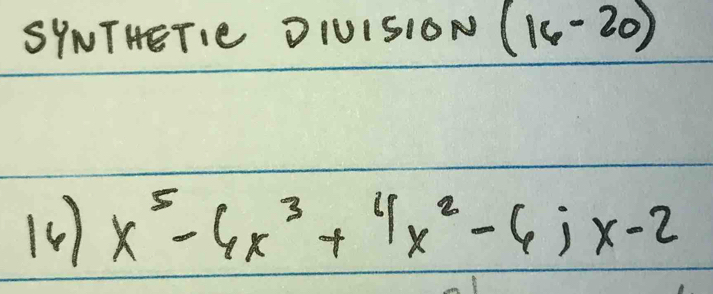 SYNTHETIC DIVISION (16-20)
16) x⁵ - 6x³ + 4x² - 6 ; x-2